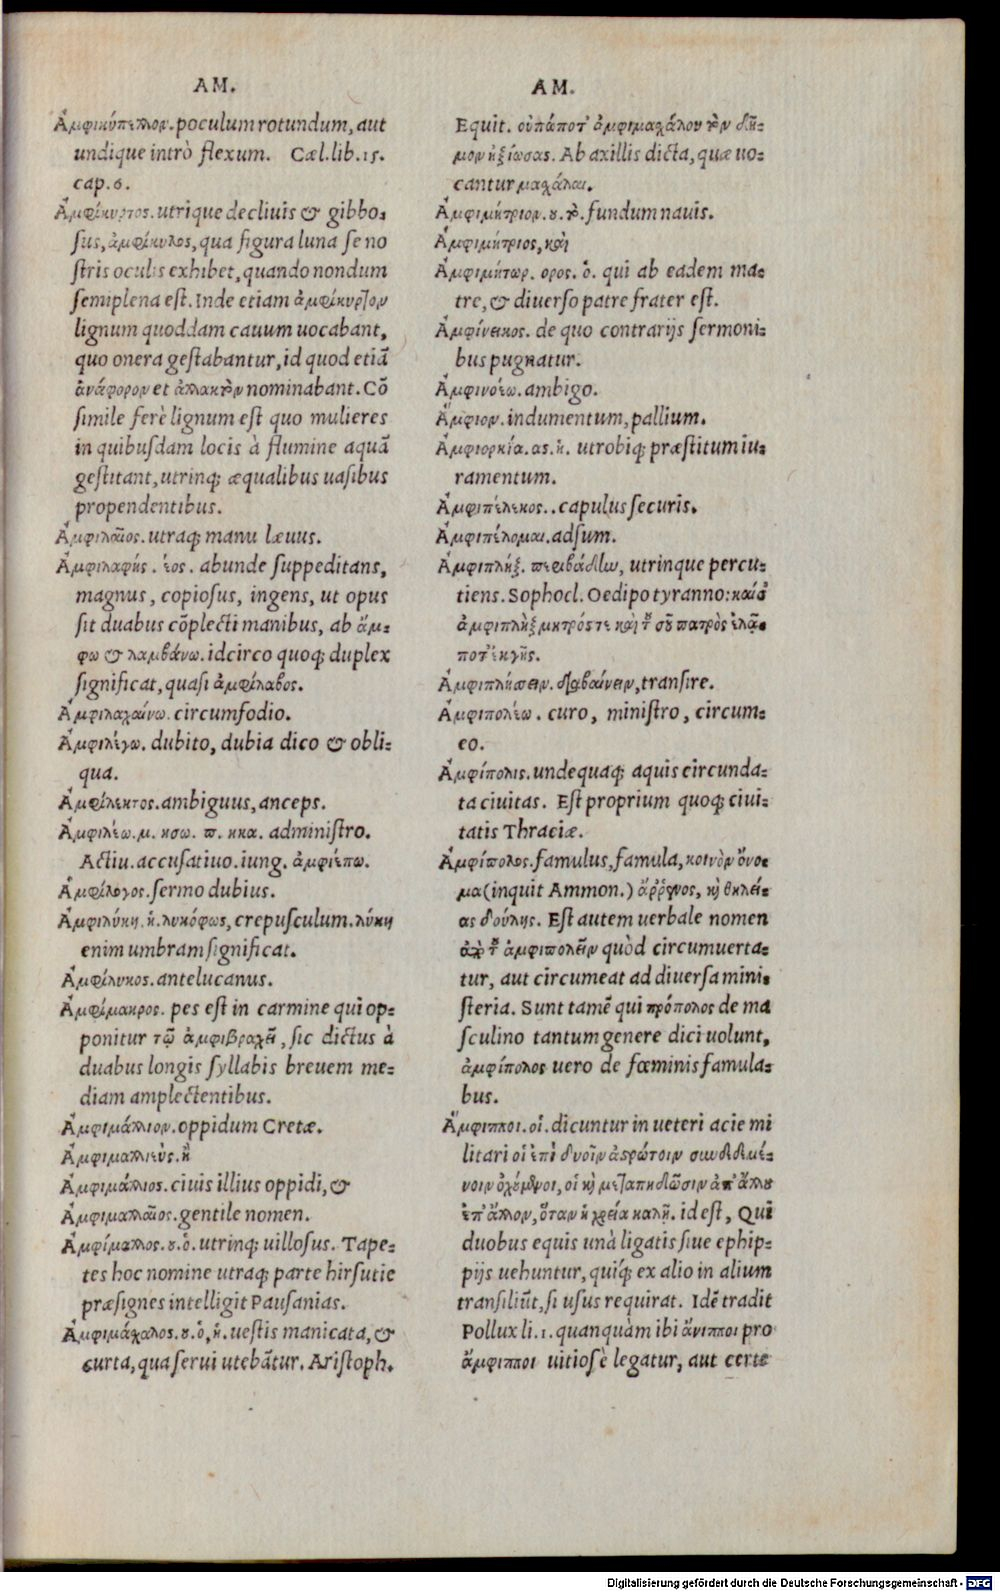 AM.
Ἀμφικύπελλον. poculum rotundum, aut
undique intrò flexum. Cæl. lib. 15.
cap. 6.
Ἀμφίκυρτος. utrique decliuis & gibbo-
sus, ἀμφίκυλος, qua figura luna se no
stris oculis exhibet, quando nondum
semiplena est. Inde etiam ἀμφίκυρτον
lignum quoddam cauum uocabant,
quo onera gestabantur, id quod etiã
ἀνάφορον et ἀλλακτὸν nominabant. Cõ
simile ferè lignum est quo mulieres
in quibusdam locis à flumine aquã
gestitant, utrinq; æqualibus uasibus
propendentibus.
Ἀμφιλαῖος. utraq; manu læuus.
Ἀμφιλαφής. έος. abunde suppeditans,
magnus, copiosus, ingens, ut opus
sit duabus cõplecti manibus, ab ἄμ-
φω & λαμβάνω. idcirco quoq; duplex
significat, quasi ἀμφίλαβος.
Ἀμφιλαχαίνω. circumfodio.
Ἀμφιλέγω. dubito, dubia dico & obli-
qua.
Ἀμφίλεκτος. ambiguus, anceps.
Ἀμφιλέω. μ. ησω. π. ηκα. administro.
Actiu. accusatiuo. iung. ἀμφιέπω.
Ἀμφίλογος. sermo dubius.
Ἀμφιλύκη. ἡ. λυκόφως, crepusculum. λύκη
enim umbram significat.
Ἀμφίλυκος. antelucanus.
Ἀμφίμακρος. pes est in carmine qui op-
ponitur τῷ ἀμφιβραχεῖ, sic dictus à
duabus longis syllabis breuem me-
diam amplectentibus.
Ἀμφιμάλλιον. oppidum Cretæ.
Ἀμφιμαλλιεὺς. ἢ
Ἀμφιμάλλιος. ciuis illius oppidi, &
Ἀμφιμαλλαῖος. gentile nomen.
Ἀμφίμαλλος. ου. ὁ. utrinq; uillosus. Tape-
tes hoc nomine utraq; parte hirsutie
præsignes intelligit Pausanias.
Ἀμφιμάχαλος. ου. ὁ, ἡ. uestis manicata, &
curta, qua serui utebãtur. Aristoph.
AM.
Equit. οὐπώποτ' ἀμφιμαχάλου τὸν δῆ-
μον ἠξίωσας. Ab axillis dicta, quæ uo-
cantur μαχάλαι.
Ἀμφιμήτριον. ου. τὸ. fundum nauis.
Ἀμφιμήτριος, καὶ
Ἀμφιμήτωρ. ορος. ὁ. qui ab eadem ma-
tre, & diuerso patre frater est.
Ἀμφίνεικος. de quo contrarijs sermoni-
bus pugnatur.
Ἀμφινοέω. ambigo.
Ἄμφιον. indumentum, pallium.
Ἀμφιορκία. ας. ἡ. utrobiq; præstitum iu-
ramentum.
Ἀμφιπέλεκος.. capulus securis.
Ἀμφιπέλομαι. adsum.
Ἀμφιπλήξ. utrinque percu-
tiens. Sophocl. Oedipo tyranno: καί σ'
ἀμφιπλὴξ μητρός τε καὶ τοῦ σοῦ πατρὸς ἐλᾷ-
ποτ' ἐκ γῆς.
Ἀμφιπλήσσειν. διαβαίνειν, transire.
Ἀμφιπολέω. curo, ministro, circum-
eo.
Ἀμφίπολις. undequaq; aquis circunda-
ta ciuitas. Est proprium quoq; ciui-
tatis Thraciæ.
Ἀμφίπολος. famulus, famula, κοινὸν ὄνο-
μα (inquit Ammon.) ἄῤῥενος, καὶ θηλεί-
ας δούλης. Est autem uerbale nomen
ἀπὸ τοῦ ἀμφιπολεῖν quòd circumuerta-
tur, aut circumeat ad diuersa mini-
steria. Sunt tamẽ qui πρόπολος de ma
sculino tantum genere dici uolunt,
ἀμφίπολος uero de fœminis famula-
bus.
Ἄμφιπποι. οἱ. dicuntur in ueteri acie mi
litari οἱ ἐπὶ δυοῖν ἀστρώτοιν συνδεδεμέ-
νοιν ὀχούμενοι, οἱ καὶ μεταπηδῶσιν ἀπ' ἄλλου
ἐπ' ἄλλον, ὅταν ἡ χρεία καλῇ. id est, Qui
duobus equis unà ligatis siue ephip-
pijs uehuntur, quiq́; ex alio in alium
transiliũt, si usus requirat. Idẽ tradit
Pollux li. 1. quanquàm ibi ἄνιπποι pro
ἄμφιπποι uitiosè legatur, aut certe
Digitalisierung gefördert durch die Deutsche Forschungsgemeinschaft - DFG